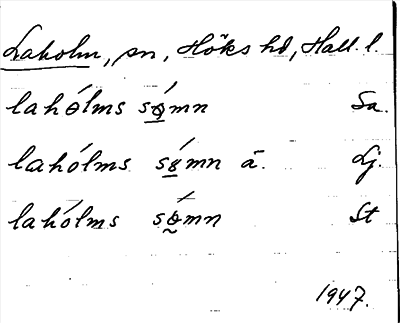 Laholm, sn, Höks hd, Hall. l.
lahólms sǫ́mn Sa.
lahólms sǫ́mn ä. Lj.
lahólms sǫ́mn St
1947.